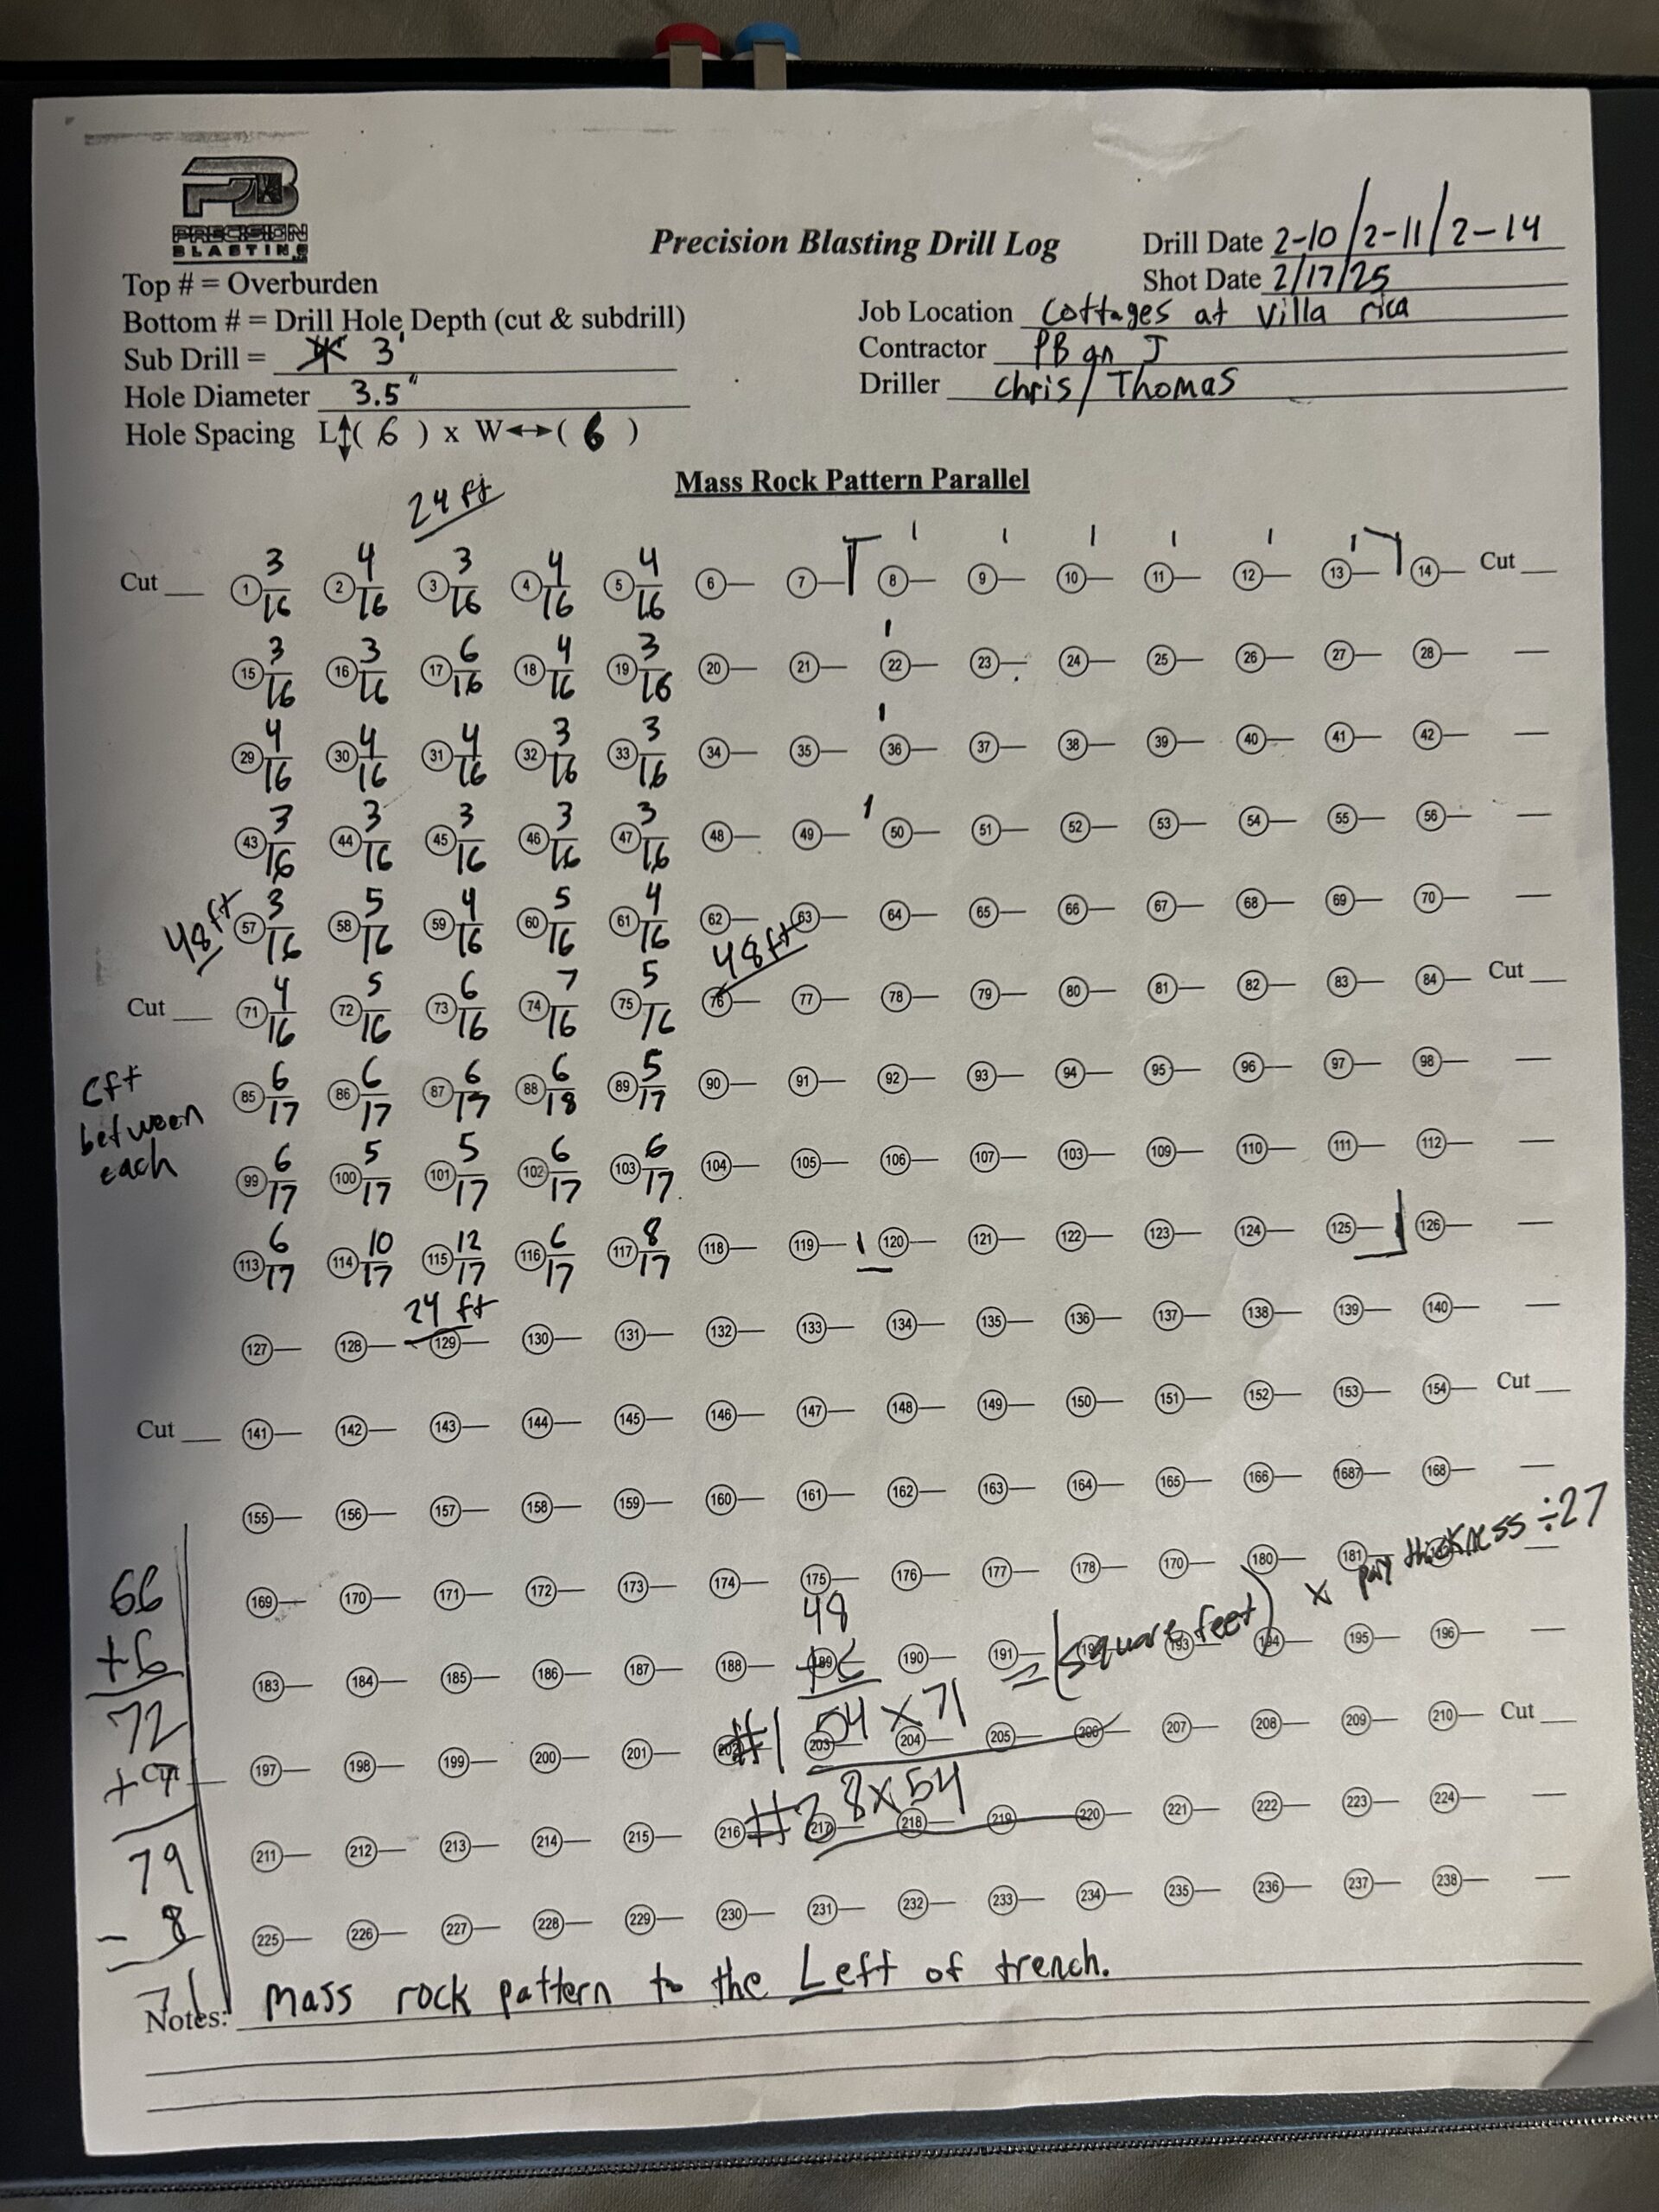 PB
PRECISION
BLASTING
Precision Blasting Drill Log
Drill Date 2-10/2-11/2-14
Shot Date 2/17/25
Top # = Overburden
Bottom # = Drill Hole Depth (cut & subdrill)
Sub Drill = 3'
Hole Diameter 3.5"
Hole Spacing L↕( 6 ) x W↔( 6 )
Job Location Cottages at Villa rica
Contractor PB
Driller Chris/Thomas
Mass Rock Pattern Parallel
24 ft
Cut 1 3/16 2 4/16 3 3/16 4 4/16 5 4/16 6 7 8 9 10 11 12 13 14 Cut
15 3/16 16 3/16 17 6/16 18 4/16 19 3/16 20 21 22 23 24 25 26 27 28
29 4/16 30 4/16 31 4/16 32 3/16 33 3/16 34 35 36 37 38 39 40 41 42
43 3/16 44 3/16 45 3/16 46 3/16 47 3/16 48 49 50 51 52 53 54 55 56
48 ft 57 3/16 58 5/16 59 4/16 60 5/16 61 4/16 62 63 64 65 66 67 68 69 70
48 ft
Cut 71 4/16 72 5/16 73 6/16 74 7/16 75 5/16 76 77 78 79 80 81 82 83 84 Cut
85 6/17 86 6/17 87 6/17 88 6/18 89 5/17 90 91 92 93 94 95 96 97 98
6ft
between
each
99 6/17 100 5/17 101 5/17 102 6/17 103 6/17 104 105 106 107 103 109 110 111 112
113 6/17 114 10/17 115 12/17 116 6/17 117 8/17 118 119 120 121 122 123 124 125 126
24 ft
127 128 129 130 131 132 133 134 135 136 137 138 139 140
Cut 141 142 143 144 145 146 147 148 149 150 151 152 153 154 Cut
155 156 157 158 159 160 161 162 163 164 165 166 1687 168
169 170 171 172 173 174 175 176 177 178 170 180 181
183 184 185 186 187 188 189 190 191 193 194 195 196
197 198 199 200 201 202 203 204 205 206 207 208 209 210 Cut
211 212 213 214 215 216 217 218 219 220 221 222 223 224
225 226 227 228 229 230 231 232 233 234 235 236 237 238
66
+6
72
+7
79
- 8
71
48
+6
#1 54 x 71 = (square feet) x pay thickness ÷27
#2 8x54
Notes: Mass rock pattern to the Left of trench.